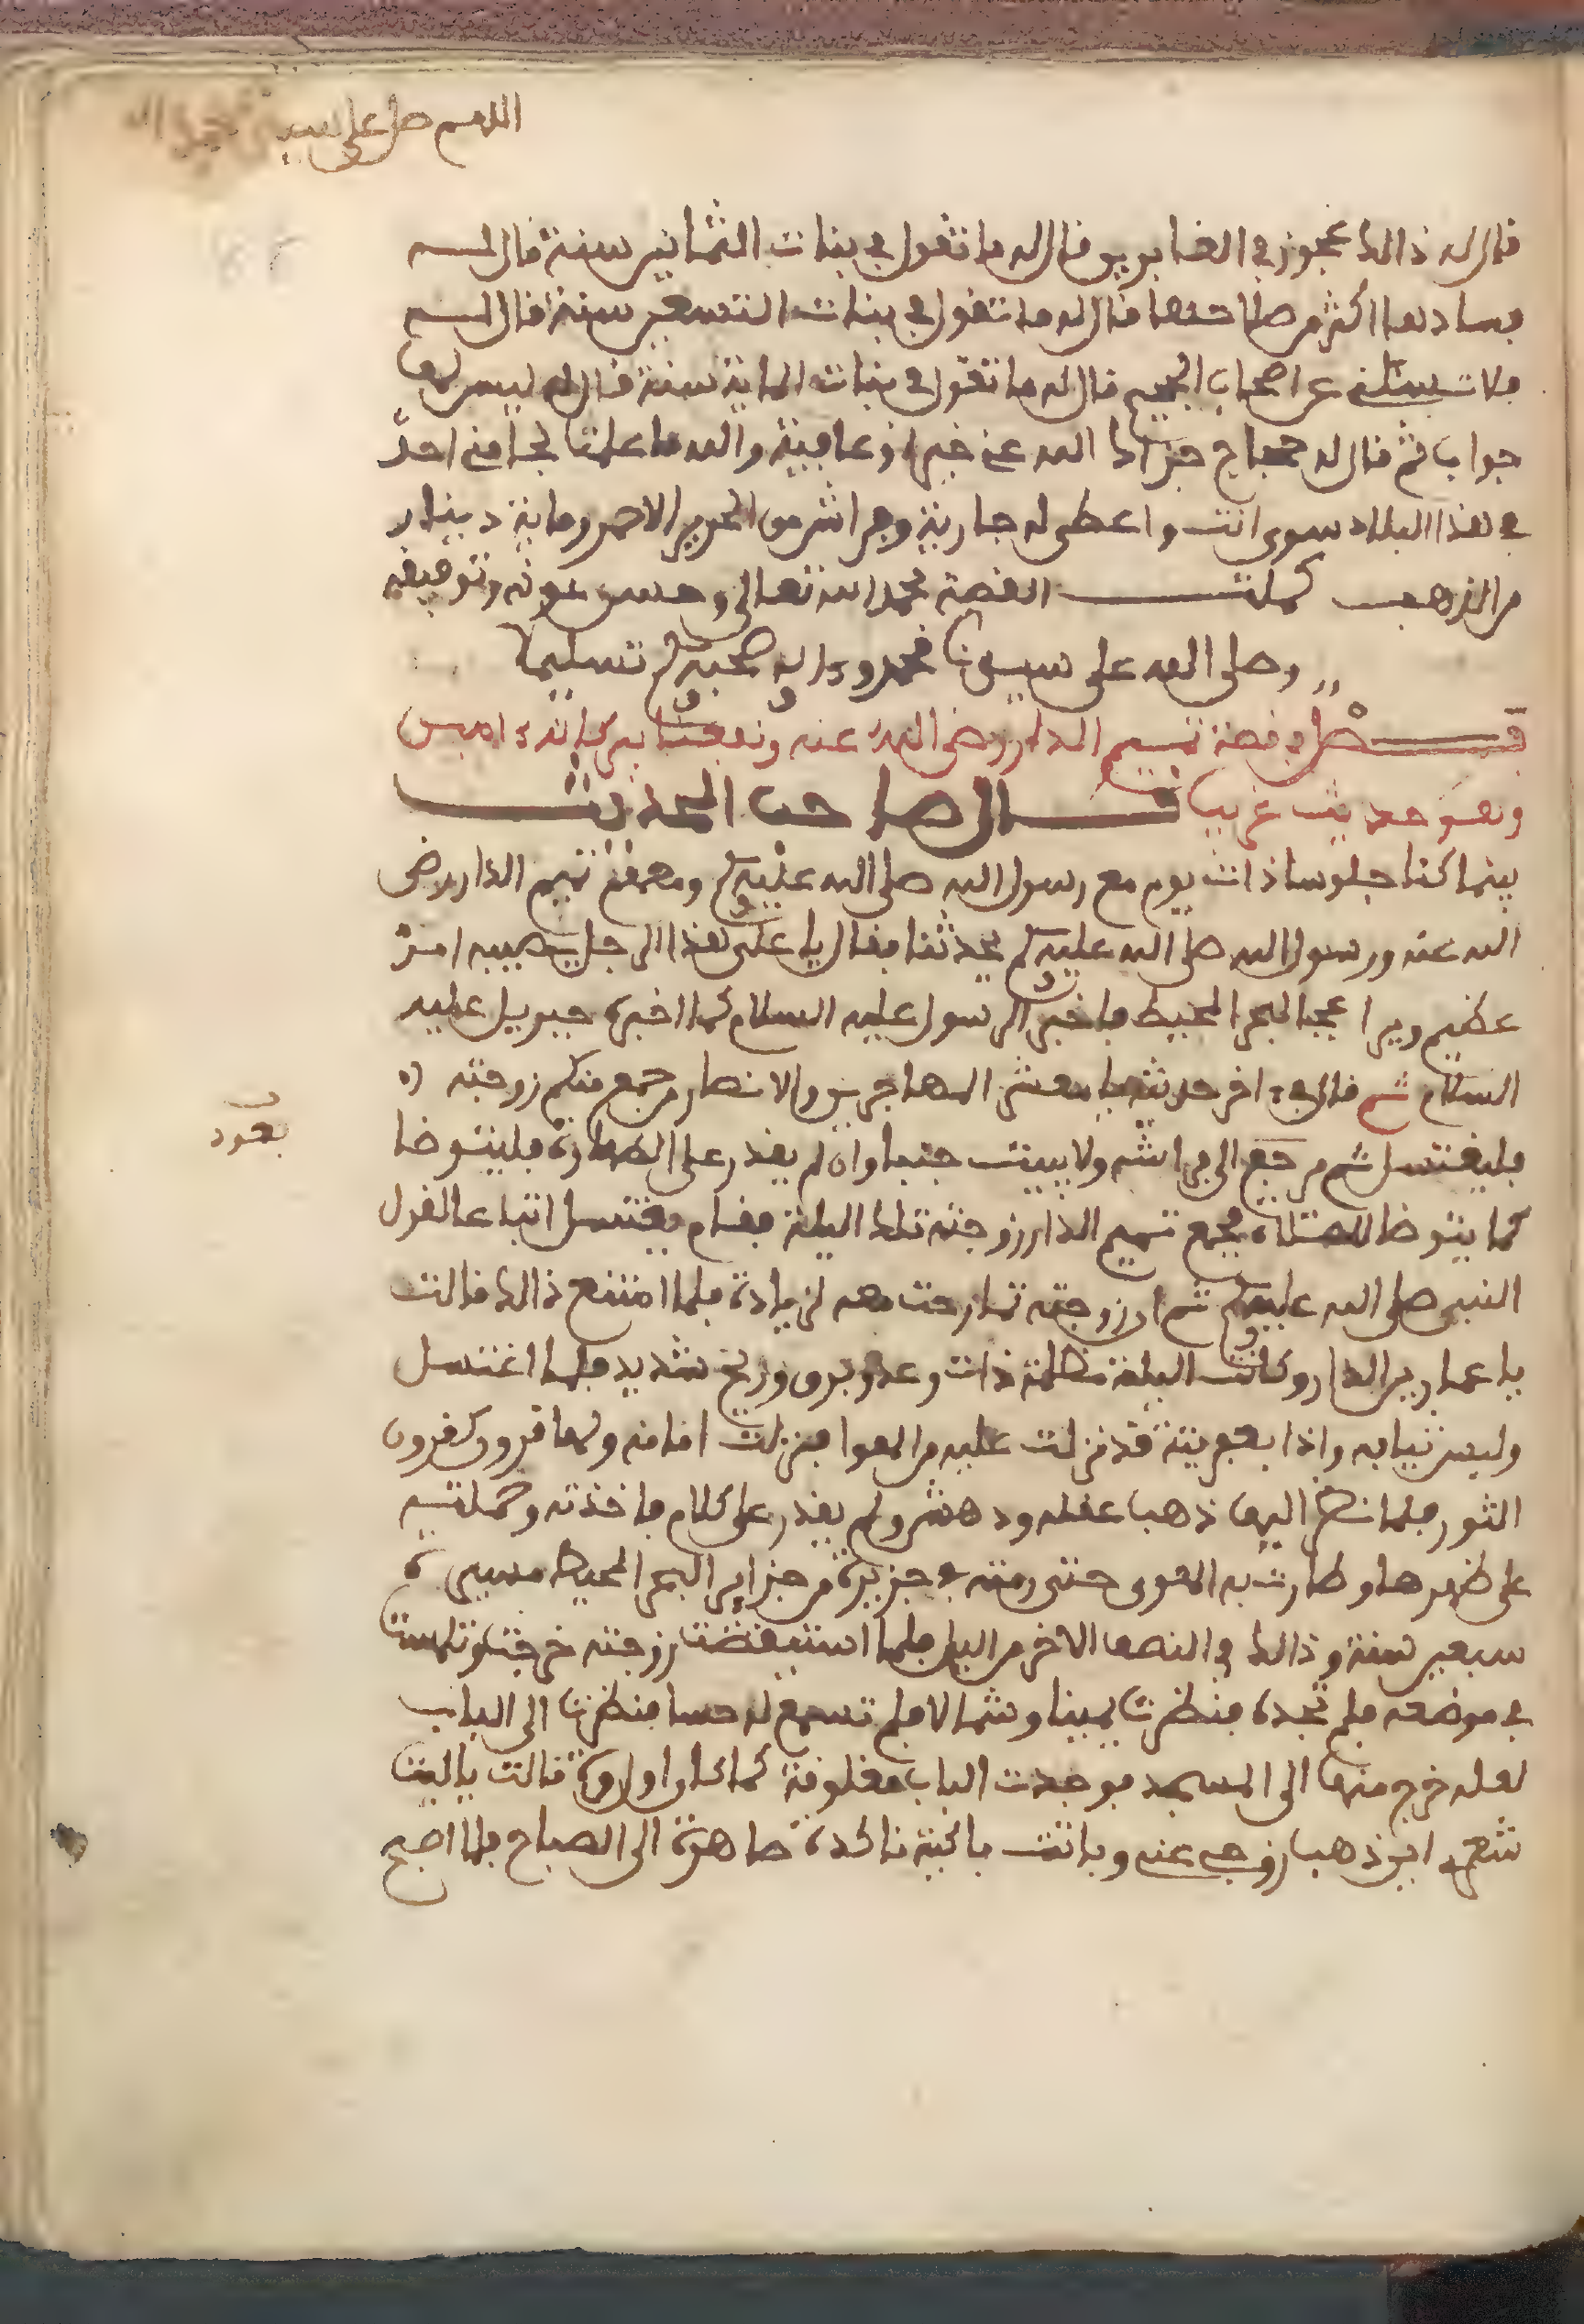 اللهم صل على سيدنا محمد
قال له ذالك عجوز في الغابرين قال له ما تقول في بنات الثمانين سنة قال له
فسادها اكثر من صلاحها قال له ما تقول في بنات التسعين سنة قال له
فلا تسئلني عن اصحاب الجحيم قال له ما تقول في بنات الماية سنة قال له ليس لها
جواب ثم قال له حجاج جزاك الله عني خيرا وعافية والله ما علمت احد
في هذا البلاد سوى انت واعطى له جارية وفراش من الحرير الاحمر وماية دينار
من الذهب كملت القصة بحمد الله تعالى وحسن عونه وتوفيقه
وصلى الله على سيدنا محمد وءاله وصحبه وسلم تسليما
فصل في قصة تميم الدار رضي الله عنه ونفعنا ببركاته ءامين
وهو حديث غريب قال صاحب الحديث
بينما كنا جلوسا ذات يوم مع رسول الله صلى الله عليه وسلم ومعهم تميم الدار رضي
الله عنه ورسول الله صلى الله عليه وسلم يحدثنا فقال يا على هذا الرجل يصيبه امر
عظيم ويرا عجب البحر المحيط فاخبر الرسول عليه السلام كما اخبره جبريل عليه
السلام ثم قال في ءاخر حديثه يا معشر المهاجرين والانصار من جمع منكم زوجته
يعود
فليغتسل ثم يرجع الى فراشه ولا يبيت جنبا وان لم يقدر على الطهارة فليتوضا
كما يتوضا للصلاة فجمع تميم الدار زوجته تلك اليلة فقام يغتسل اتباعا لقول
النبي صلى الله عليه وسلم ثم ان زوجته تمازحت معه لزيادة فلما امتنع ذالك قالت
يا عمار الدار وكانت اليلة مظلمة ذات رعد وبرق وريح شديد فلما اغتسل
ولبس ثيابه واذا بعفريتة قد نزلت عليه من الهوا فنزلت امامه ولها قرون كقرون
الثور فلما نظر اليها ذهب عقله ودهش ولم يقدر على كلام فاخذته وحملته
على ظهرها وطارت به الهوى حتى رمته في جزيرة من جزاير البحر المحيط مسيرة
سبعين سنة وذالك في النصف الاخر من اليل فلما استيقضت زوجته خرجت وتلمست
في موضعه فلم تجده فنظرت يمينا وشمالا فلم تسمع له حسا فنظرت الى الباب
لعله خرج منها الى المسجد فوجدت الباب مغلوقة كما كان اول مرة قالت يا ليت
شعري اين ذهب زوجي عني وباتت باكية ناكدة ساهرة الى الصباح فلما اصبح